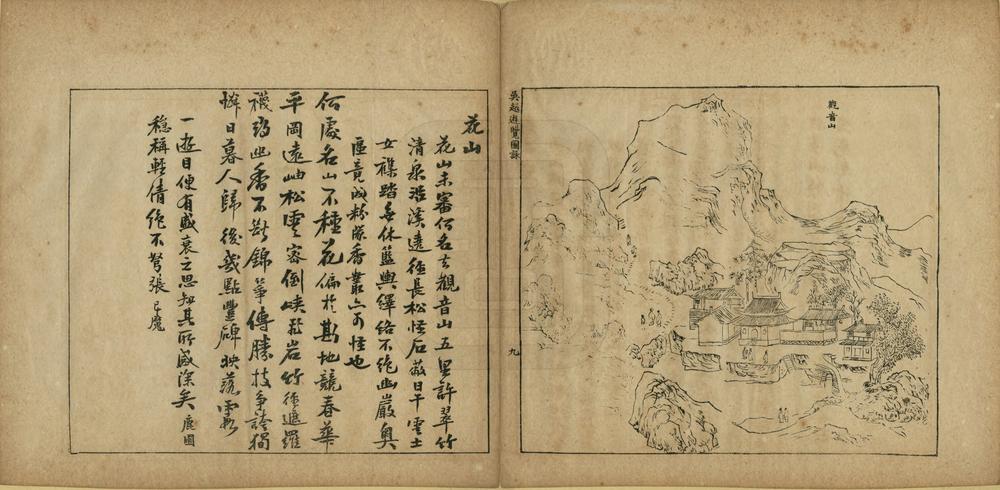 觀音山
吳越遊覽圖詠
九
花山
花山未審何名去觀音山五里許翠竹
清泉溪遠徑長松怪石蔽日干雲士
女雜踏無休藍輿繹絡不絕幽巖奧
區竟成粉隊香叢亦可怪也
何處名山不種花偏於斯地競春華
平岡遠岫松雲密倒峽飛岩竹徑遮羅
襪幽香不斷錦箏傳勝技爭誇獨
憐日暮人歸後幾點豐碑映落霞
一遊日便有盛衰之思知其所感深矣 鹿園
穩稱輕倩絕不弩張 魔